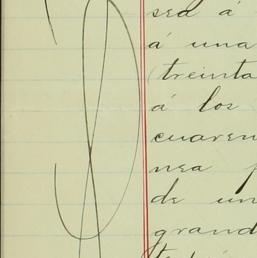 sea á
á una
(treinta
á los
cuaren
nea p
de un
grand